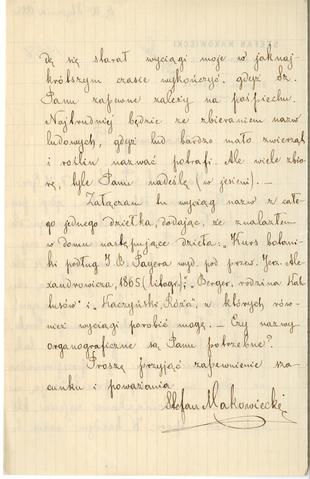 dę się starał wyciągi moje w jaknaj-
krótszym czasie wykończyć, gdyż Sz.
Panu zapewne zależy na pośpiechu.
Najtrudniej będzie ze zbieraniem nazw
ludowych, gdyż lud bardzo mało zwierząt
i roślin nazwać potrafi. Ale wiele zbio-
rę, tyle Panu nadeślę (w jesieni). —
Załączam tu wyciąg nazw z całe-
go jednego dziełka, dodając, że znalazłem
w domu następujące dzieła: "Kurs botani-
ki podług J. B. Payera wyd. pod przew. Jerz. Ale-
xandrowicza, 1865 (litogr.); "Berger, rodzina Kak-
tusów" i "Kaczyński, Róża", z których rów-
nież wyciągi porobić mogę. — Czy nazwy
organograficzne są Panu potrzebne?
Proszę przyjąć zapewnienie sza-
cunku i poważania
Stefan Makowiecki
STEFAN MAKOWIECKI